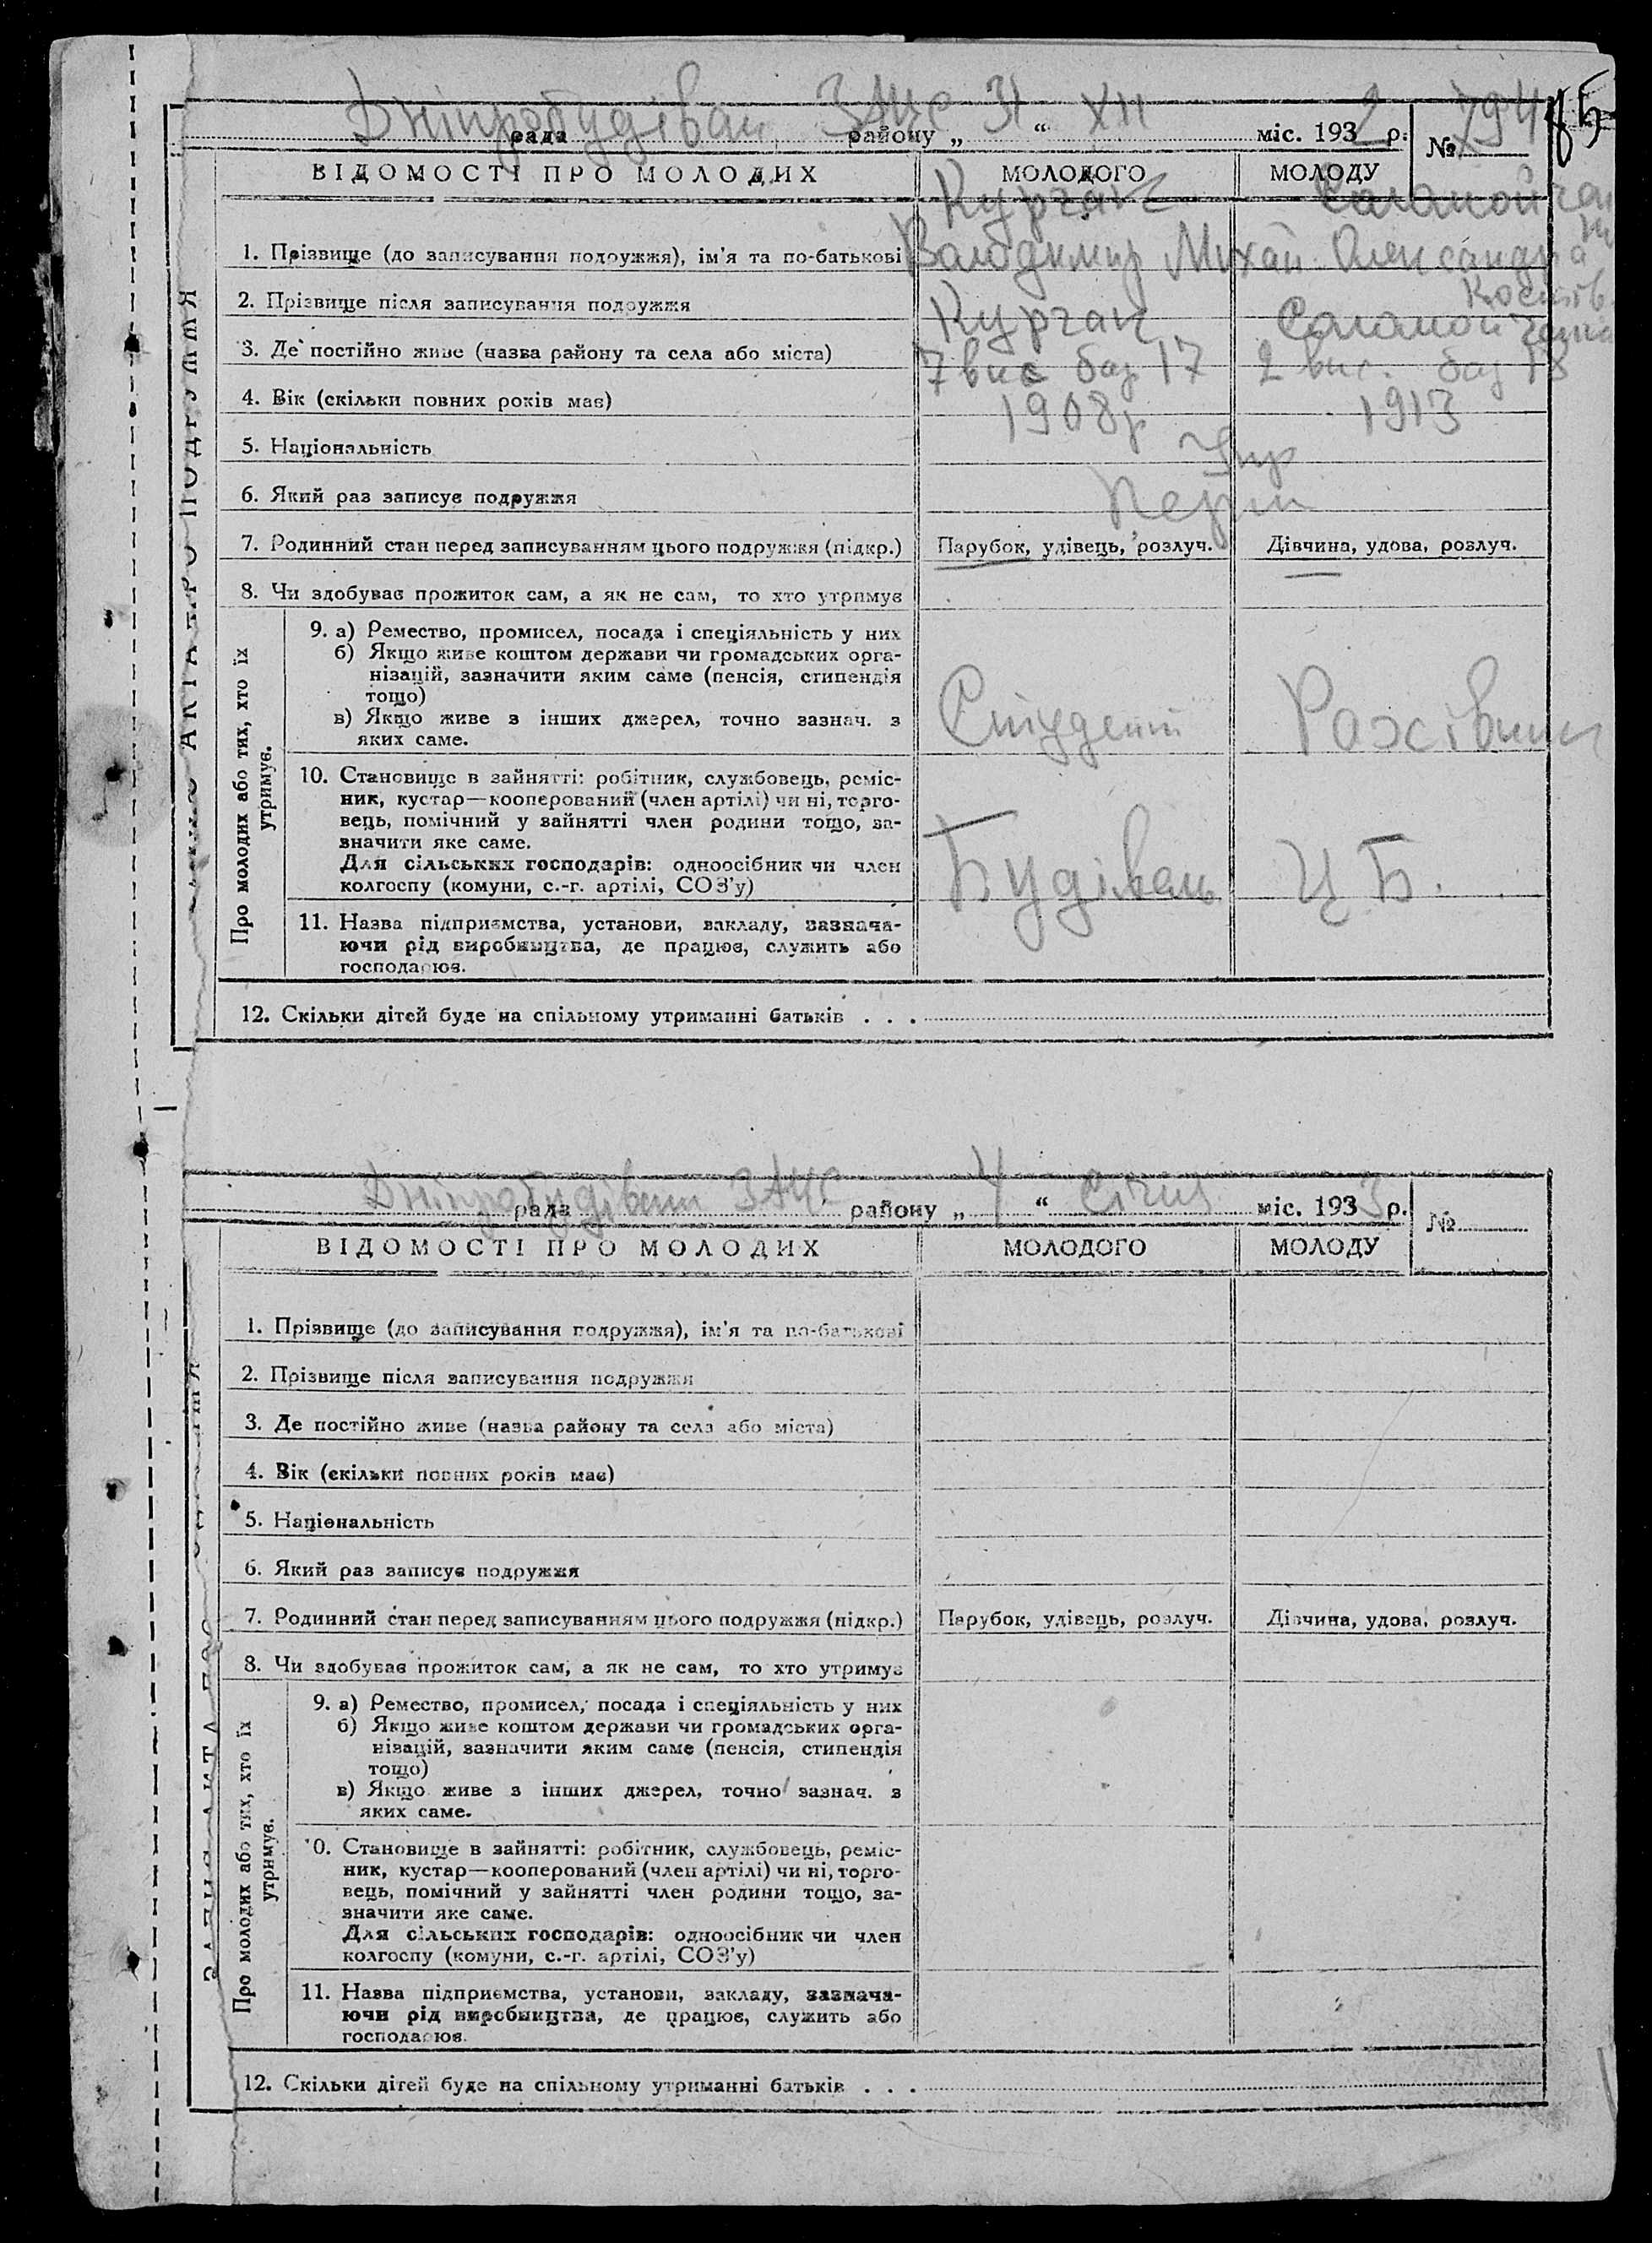 Дніпробудіван ЗАГС 31 XII 2 794 85
рада району „ “ міс. 193 р. №
ВІДОМОСТІ ПРО МОЛОДИХ МОЛОДОГО МОЛОДУ
Курган
1. Прізвище (до записування подружжя), ім'я та по-батькові Володимир Михай Олександра
2. Прізвище після записування подружжя Курган
3. Де постійно живе (назва району та села або міста) 7 вис бар 17 2 вис. бар 18
4. Вік (скільки повних років має) 1908р 1913
5. Національність Укр
6. Який раз записує подружжя Перш
7. Родинний стан перед записуванням цього подружжя (підкр.) Парубок, удівець, розлуч. Дівчина, удова, розлуч.
8. Чи здобуває прожиток сам, а як не сам, то хто утримує
Про молодих або тих, хто їх утримує.
9. а) Ремество, промисел, посада і спеціяльність у них
б) Якщо живе коштом держави чи громадських орга-
нізацій, зазначити яким саме (пенсія, стипендія
тощо)
в) Якщо живе з інших джерел, точно зазнач. з
яких саме.
Студент
10. Становище в зайнятті: робітник, службовець, реміс-
ник, кустар—кооперований (член артілі) чи ні, торго-
вець, помічний у зайнятті член родини тощо, за-
значити яке саме.
Для сільських господарів: одноосібник чи член
колгоспу (комуни, с.-г. артілі, СОЗ'у)
Будівель Ц Б.
11. Назва підприємства, установи, закладу, зазнача-
ючи рід виробництва, де працює, служить або
господарює.
12. Скільки дітей буде на спільному утриманні батьків . . .
Дніпробудіван ЗАГС 4 Січня 3
рада району „ “ міс. 193 р. №
ВІДОМОСТІ ПРО МОЛОДИХ МОЛОДОГО МОЛОДУ
1. Прізвище (до записування подружжя), ім'я та по-батькові
2. Прізвище після записування подружжя
3. Де постійно живе (назва району та села або міста)
4. Вік (скільки повних років має)
5. Національність
6. Який раз записує подружжя
7. Родинний стан перед записуванням цього подружжя (підкр.) Парубок, удівець, розлуч. Дівчина, удова, розлуч.
8. Чи здобуває прожиток сам, а як не сам, то хто утримує
Про молодих або тих, хто їх утримує.
9. а) Ремество, промисел, посада і спеціяльність у них
б) Якщо живе коштом держави чи громадських орга-
нізацій, зазначити яким саме (пенсія, стипендія
тощо)
в) Якщо живе з інших джерел, точно зазнач. з
яких саме.
0. Становище в зайнятті: робітник, службовець, реміс-
ник, кустар—кооперований (член артілі) чи ні, торго-
вець, помічний у зайнятті член родини тощо, за-
значити яке саме.
Для сільських господарів: одноосібник чи член
колгоспу (комуни, с.-г. артілі, СОЗ'у)
11. Назва підприємства, установи, закладу, зазнача-
ючи рід виробництва, де працює, служить або
господарює.
12. Скільки дітей буде на спільному утриманні батьків . . .